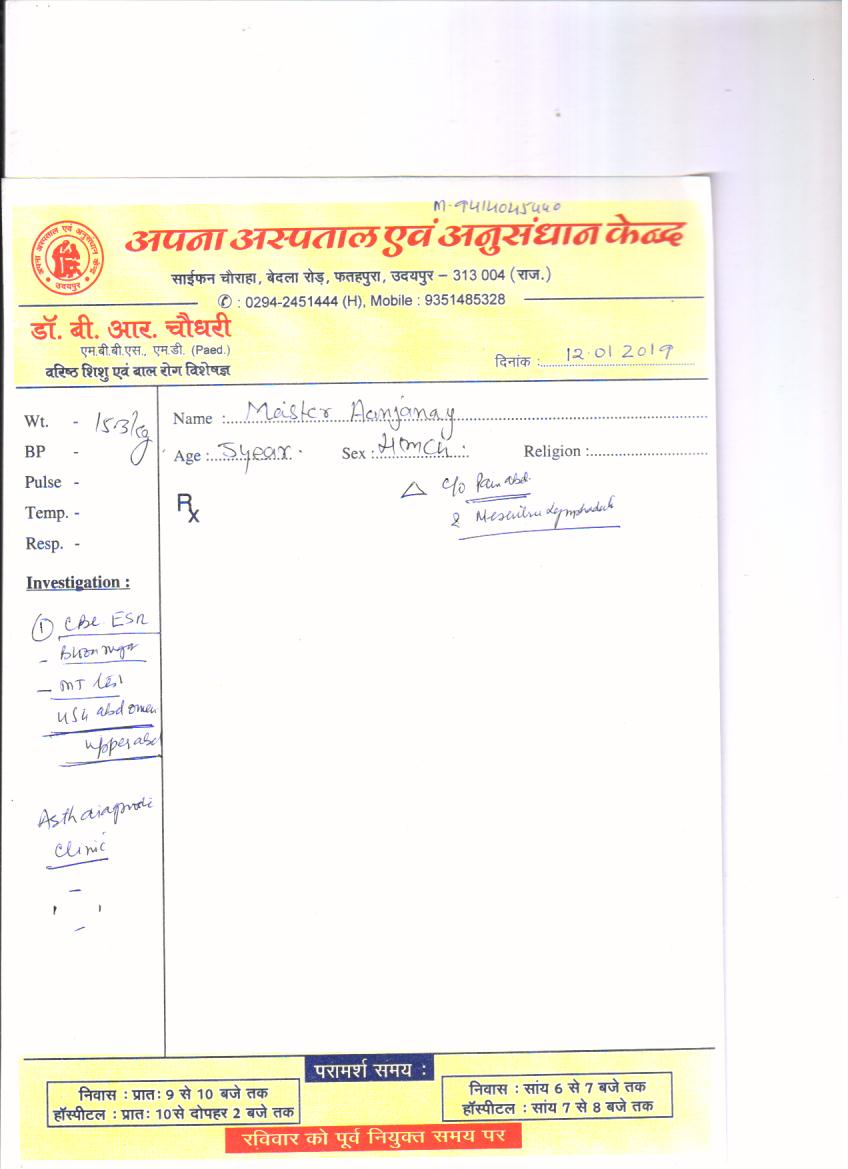 M-9414045440
अपना अस्पताल एवं अनुसंधान केन्द्र
साईफन चौराहा, बेदला रोड़, फतहपुरा, उदयपुर – 313 004 (राज.)
✆ : 0294-2451444 (H), Mobile : 9351485328
अपना अस्पताल एवं अनुसंधान केन्द्र
उदयपुर
डॉ. बी. आर. चौधरी
एम.बी.बी.एस., एम.डी. (Paed.)
वरिष्ठ शिशु एवं बाल रोग विशेषज्ञ
दिनांक : 12.01 2019
Wt. -
BP -
Pulse -
Temp. -
Resp. -
Name : Master
Age : 5 year.
Sex :
Religion :
Rx
△ c/o Pain abd.
Investigation :
① CBC ESR
- MT
USG abdomen
upper abd
Clinic
परामर्श समय :
निवास : प्रातः 9 से 10 बजे तक
हॉस्पीटल : प्रातः 10 से दोपहर 2 बजे तक
निवास : सांय 6 से 7 बजे तक
हॉस्पीटल : सांय 7 से 8 बजे तक
रविवार को पूर्व नियुक्त समय पर